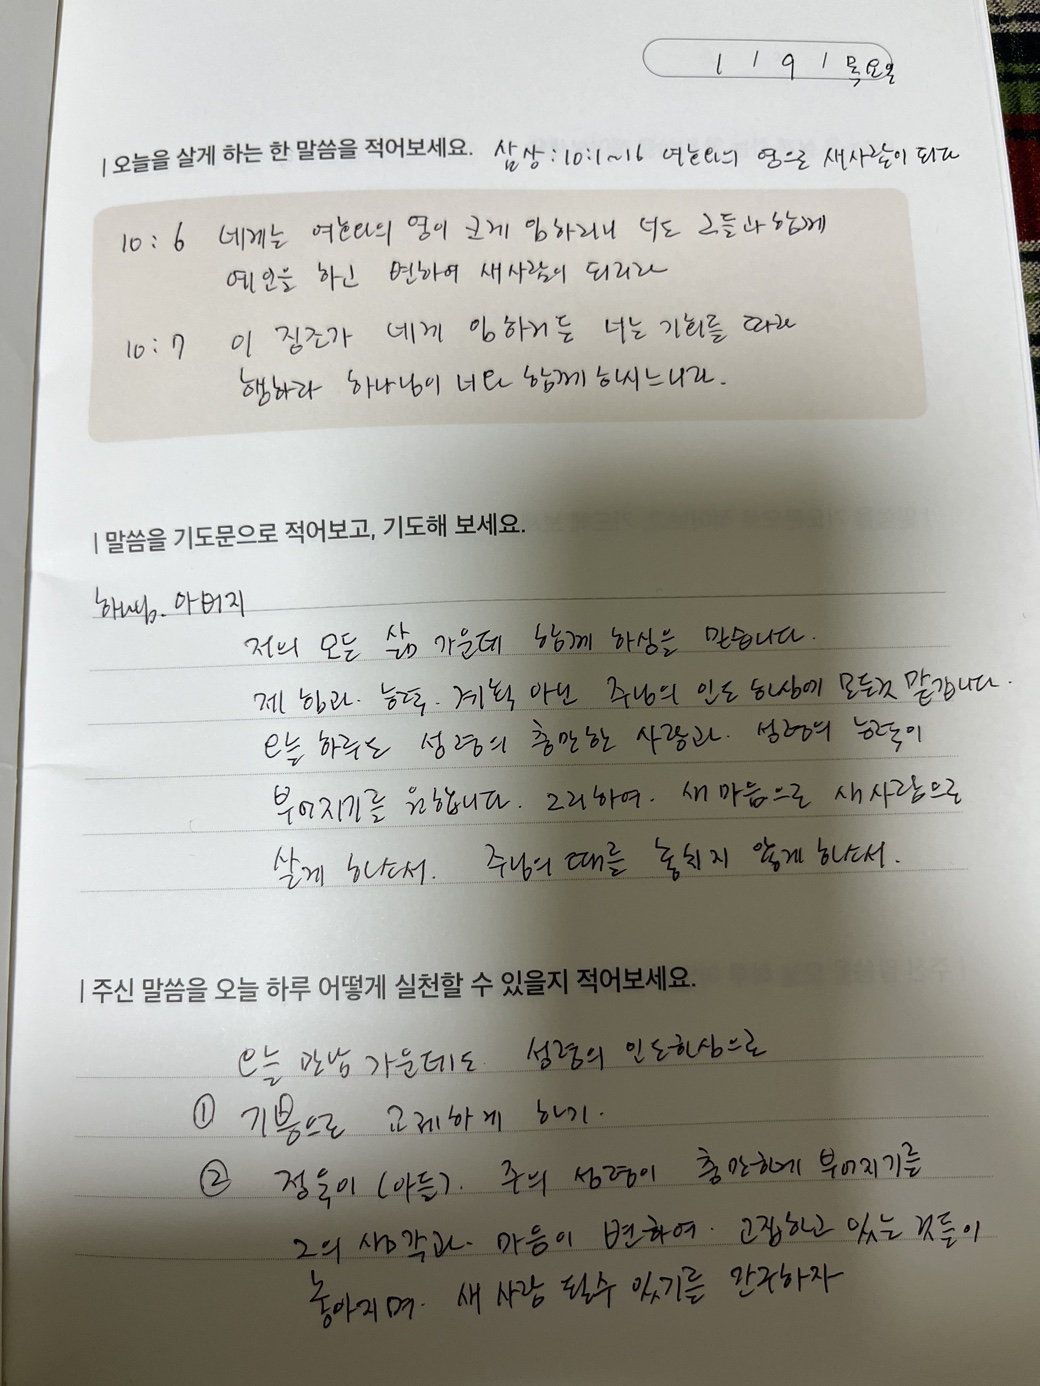 1 / 9 / 목요일
| 오늘을 살게 하는 한 말씀을 적어보세요. 삼상:10:1~16 여호와의 영으로 새사람이 되다
10:6 네게는 여호와의 영이 크게 임하리니 너도 그들과 함께
예언을 하고 변하여 새사람이 되리라
10:7 이 징조가 네게 임하거든 너는 기회를 따라
행하라 하나님이 너와 함께 하시느니라.
| 말씀을 기도문으로 적어보고, 기도해 보세요.
하나님. 아버지
저의 모든 삶 가운데 함께 하심을 믿습니다.
제 힘과. 능력. 계획 아닌 주님의 인도하심에 모든것 맡깁니다.
오늘 하루도 성령의 충만한 사랑과. 성령의 능력이
부어지기를 원합니다. 그리하여. 새 마음으로 새사람으로
살게 하소서. 주님의 때를 놓치지 않게 하소서.
| 주신 말씀을 오늘 하루 어떻게 실천할 수 있을지 적어보세요.
오늘 만남 가운데도 성령의 인도하심으로
① 기쁨으로 교제하게 하기.
② 정욱이 (아들). 주의 성령이 충만하게 부어지기를
그의 생각과. 마음이 변하여. 고집하고 있는 것들이
놓아지며. 새 사람 될수 있기를 간구하자